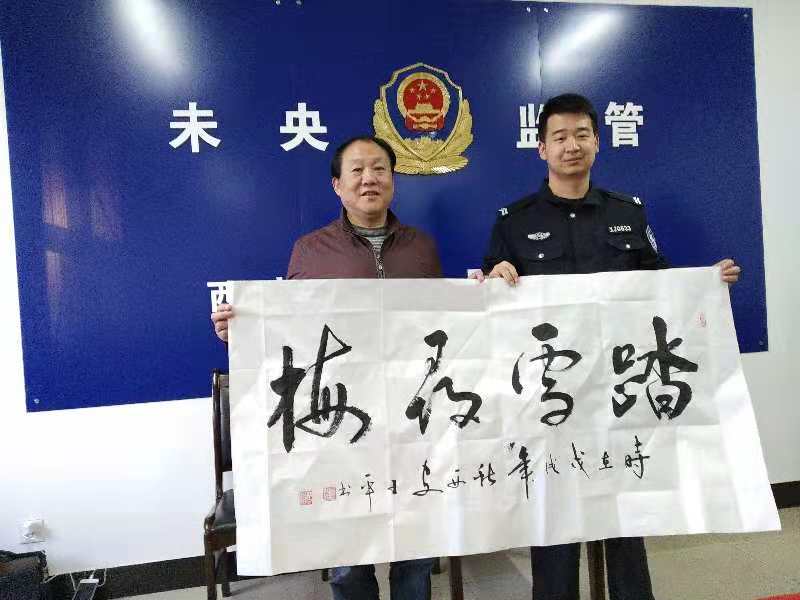 未央 监管
西
踏雪寻梅
時在戊戌年秋西安王平书